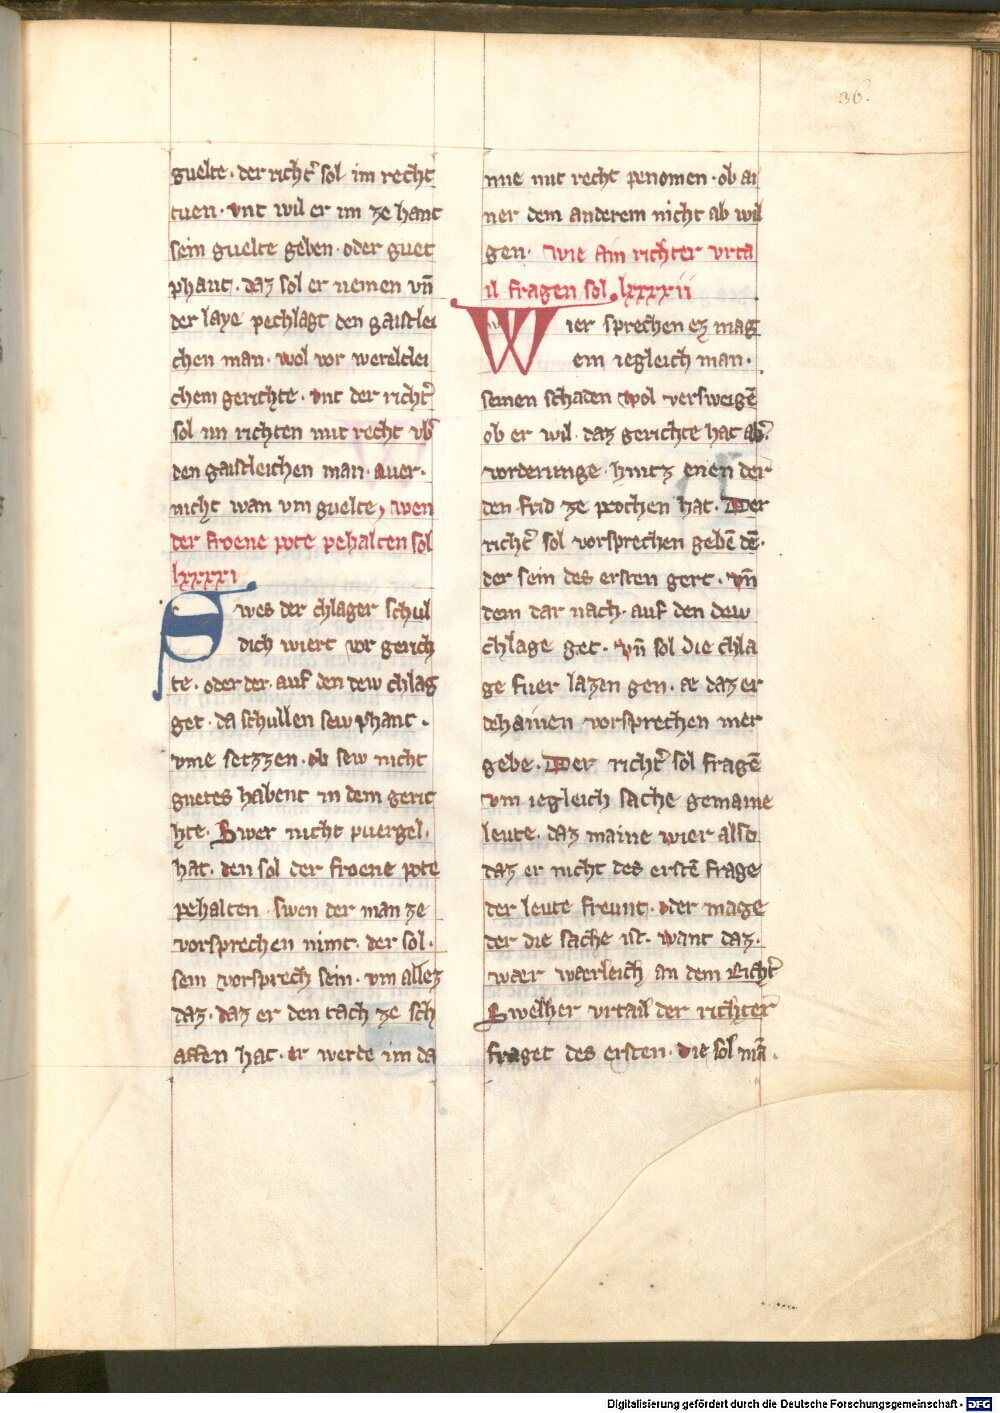 36.
guelte · der richt̉ sol im recht
tuen · vnt wil er im ze hant
sein guelte geben · oder guet
phant · daz sol er nemen vn̄
der laye pechlagt den gaistlei
chen man · wol vor wereltlei
chem gerichte · vnt der richt̉
sol im richten mit recht vb̉
den gaistleichen man · auer ·
nicht wan vm guelte, wen
der froene pote pehalten sol
lxxxxi
Swes der chlager schul
dich wiert vor gerich
te · oder der · auf den dew chlag
get · da schullen sew phant ·
vme setzzen · ob sew nicht
guetes habent in dem geric
hte · Swer nicht puergel ·
hat · den sol der froene pote
pehalten · swen der man ze
vorsprechen nimt · der sol ·
sein vorsprech sein · vm allez
daz · daz er den tach ze sch
affen hat · er werde im da
nne mit recht penomen · ob ai
ner dem anderem nicht ab wil
gen · wie ain richter vrta
il fragen sol · lxxxxii
Wier sprechen ez mag
ein iegleich man ·
seinen schaden wol versweigē
ob er wil · daz gerichte hat ab̉ ·
vorderunge · hintz enen der
den frid ze prochen hat · Der
richt̉ sol vorsprechen gebē dē ·
der sein des ersten gert · vn̄
dem dar nach · auf den dew
chlage get · vn̄ sol die chla
ge fuer lazen gen · ae daz er
dehainen vorsprechen mer
gebe · Der richt̉ sol fragē
vm iegleich sache gemaine
leute · daz maine wier also
daz er nicht des erstē frage
der leute freunt · oder mage
der die sache ist · want daz ·
waer waerleich an dem Richt̉
Swelher vrtail der richter
fraget des ersten · die sol mā ·
Digitalisierung gefördert durch die Deutsche Forschungsgemeinschaft - DFG